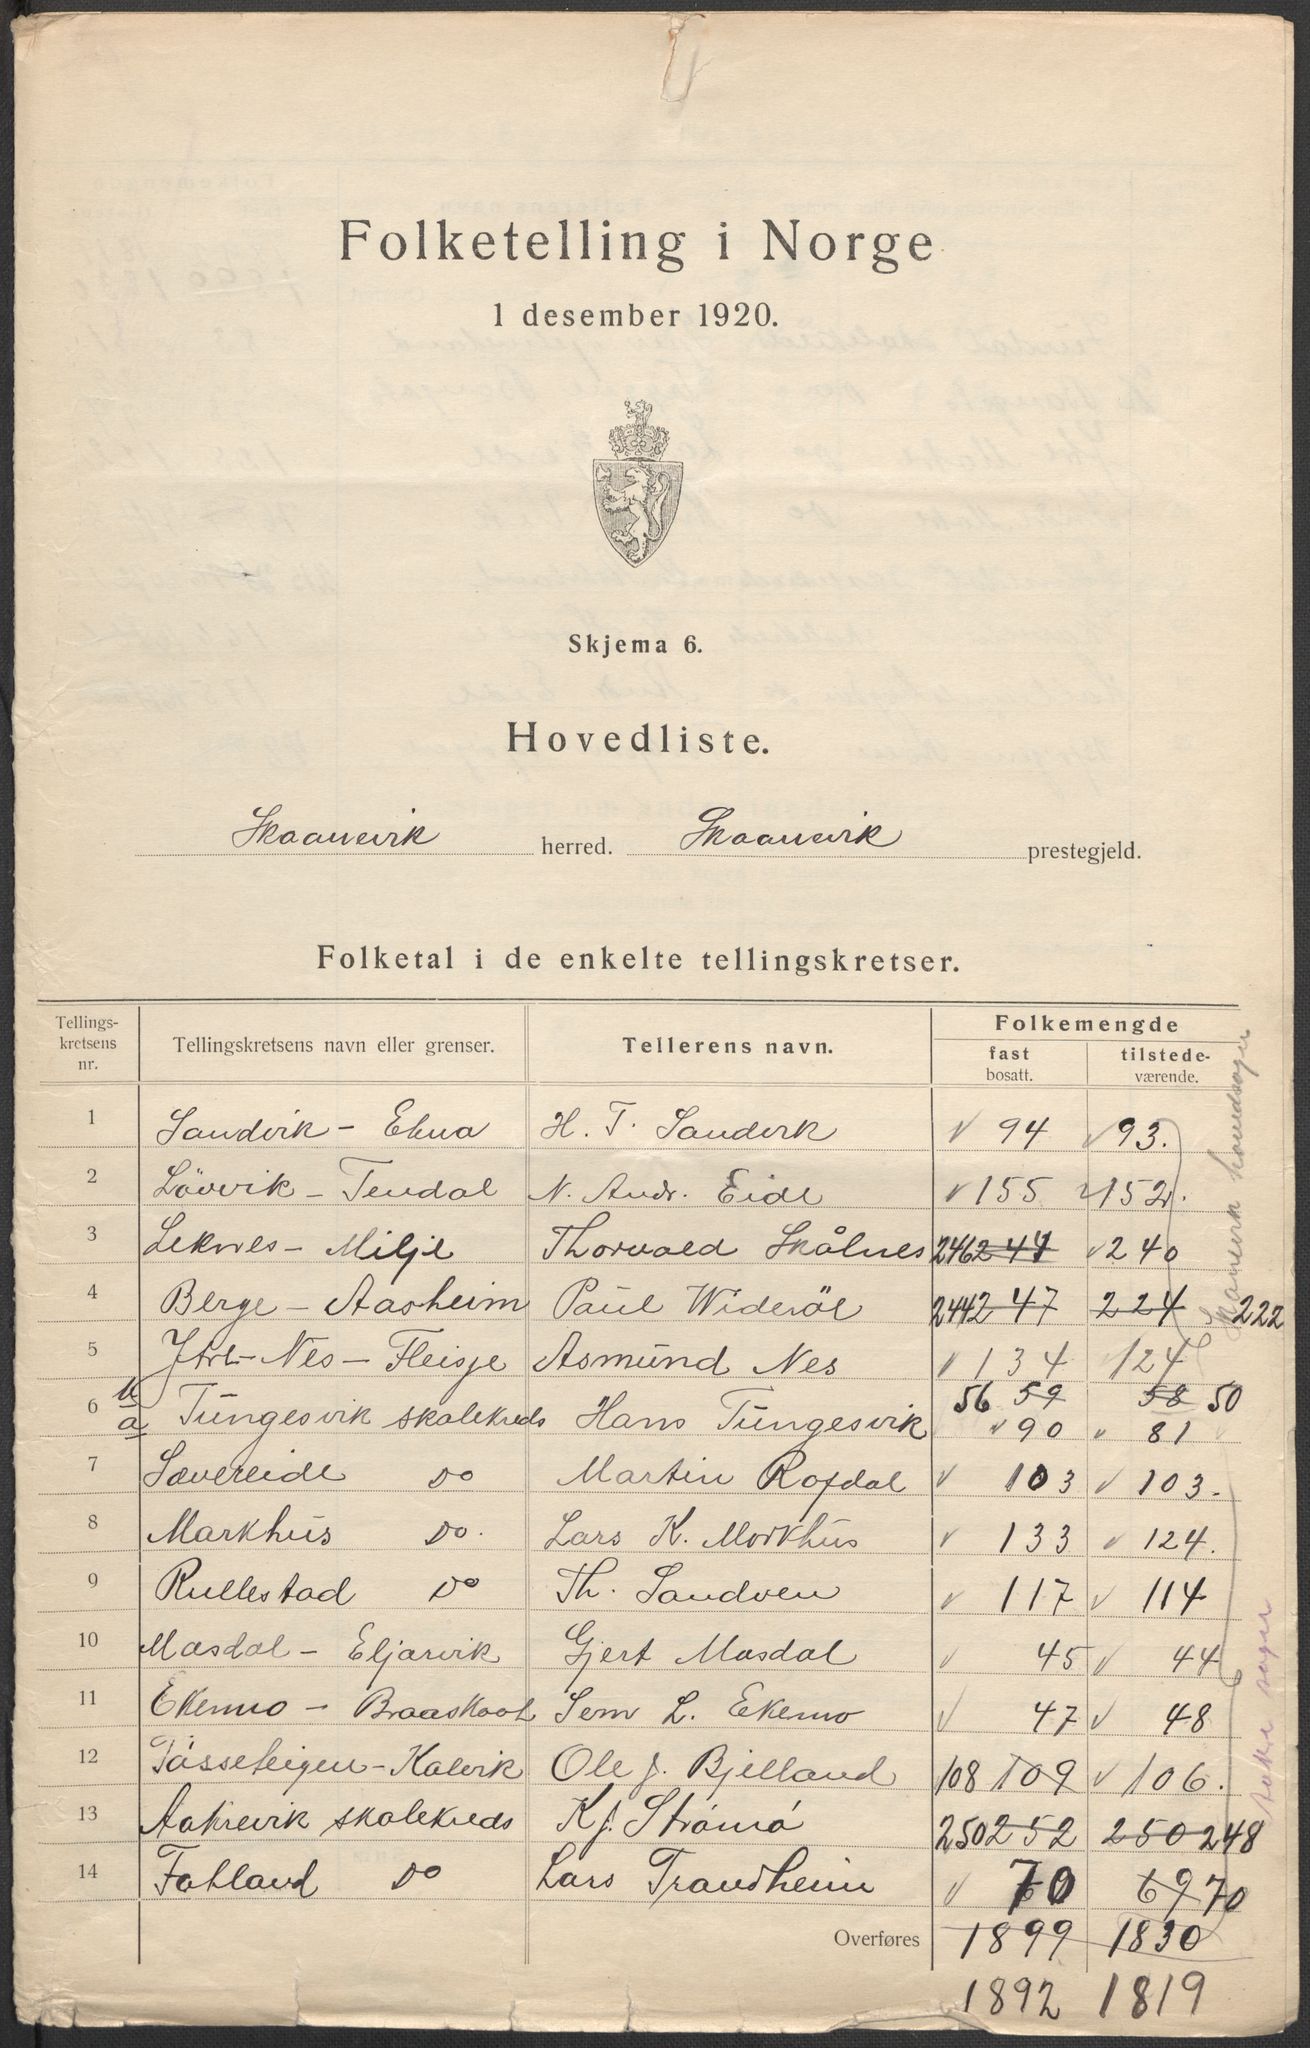 Folketelling i Norge
1 desember 1920.
Skjema 6.
Hovedliste.
Skaanevik herred. Skaanevik prestegjeld.
Folketal i de enkelte tellingskretser.
Tellings-kretsens nr. Tellingskretsens navn eller grenser. Tellerens navn. Folkemengde
fast bosatt. tilstede-værende.
1 Sandvik - Ekna H. T. Sandvik ✓ 94 ✓ 93.
2 Lövvik - Tendal N. Andr. Eide ✓ 155 ✓ 152.
3 Leknes - Milje Thorvald Skålnes 246 247 ✓ 240
4 Berge - Aasheim Paul Wideröe 244 247 224 222
5 Ytre - Nes - Fleisje Asmund Nes ✓ 134 ✓ 124
b 56 59 58 50
6 a Tungesvik skolekreds Hans Tungesvik ✓ 90 ✓ 81
7 Sævereide Do Martin Rofdal ✓ 103 ✓ 103.
8 Markhus Do. Lars K. Markhus ✓ 133 ✓ 124.
9 Rullestad Do Th. Sandven ✓ 117 ✓ 114
10 Mosdal - Eljarvik Gjert Mosdal ✓ 45 ✓ 44
11 Ekemo - Braaskoot Sem L. Ekemo ✓ 47 ✓ 48
12 Tösseteigen - Kalvik Ole J. Bjelland 108 109 ✓ 106.
13 Aakrevik skolekreds K J. Strömö 250 252 250 248
14 Fatland Do Lars Trandheim ✓ 70 69 70
Overføres 1899 1830
1892 1819
Skaanevik hovedsogn
aakre sogn